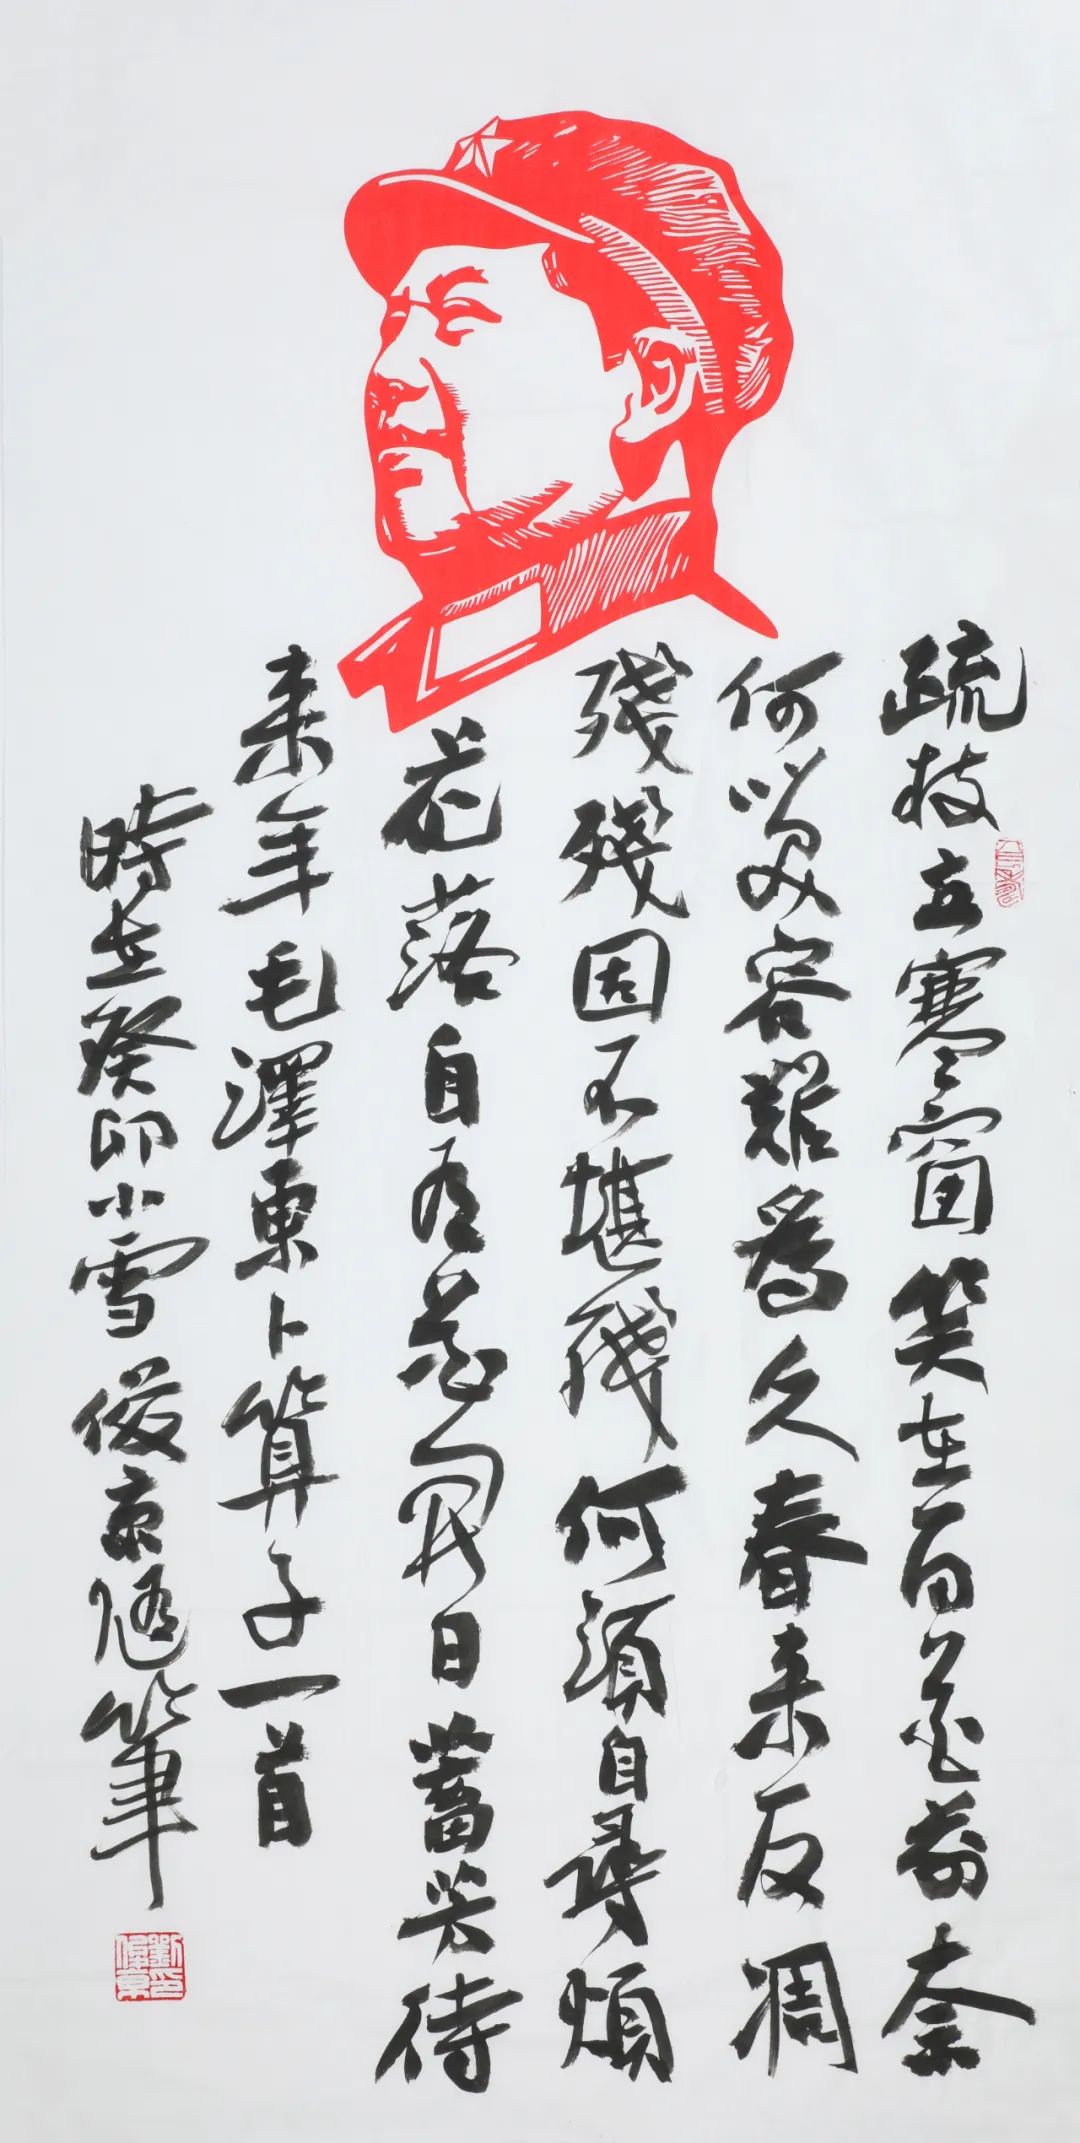 疏枝立寒窗笑在百花前奈
何笑容難爲久春来反凋
殘殘固不堪殘何須自尋煩
花落自有花開日蓄芳待
来年毛澤東卜算子一首
時在癸卯小雪俊京隨筆